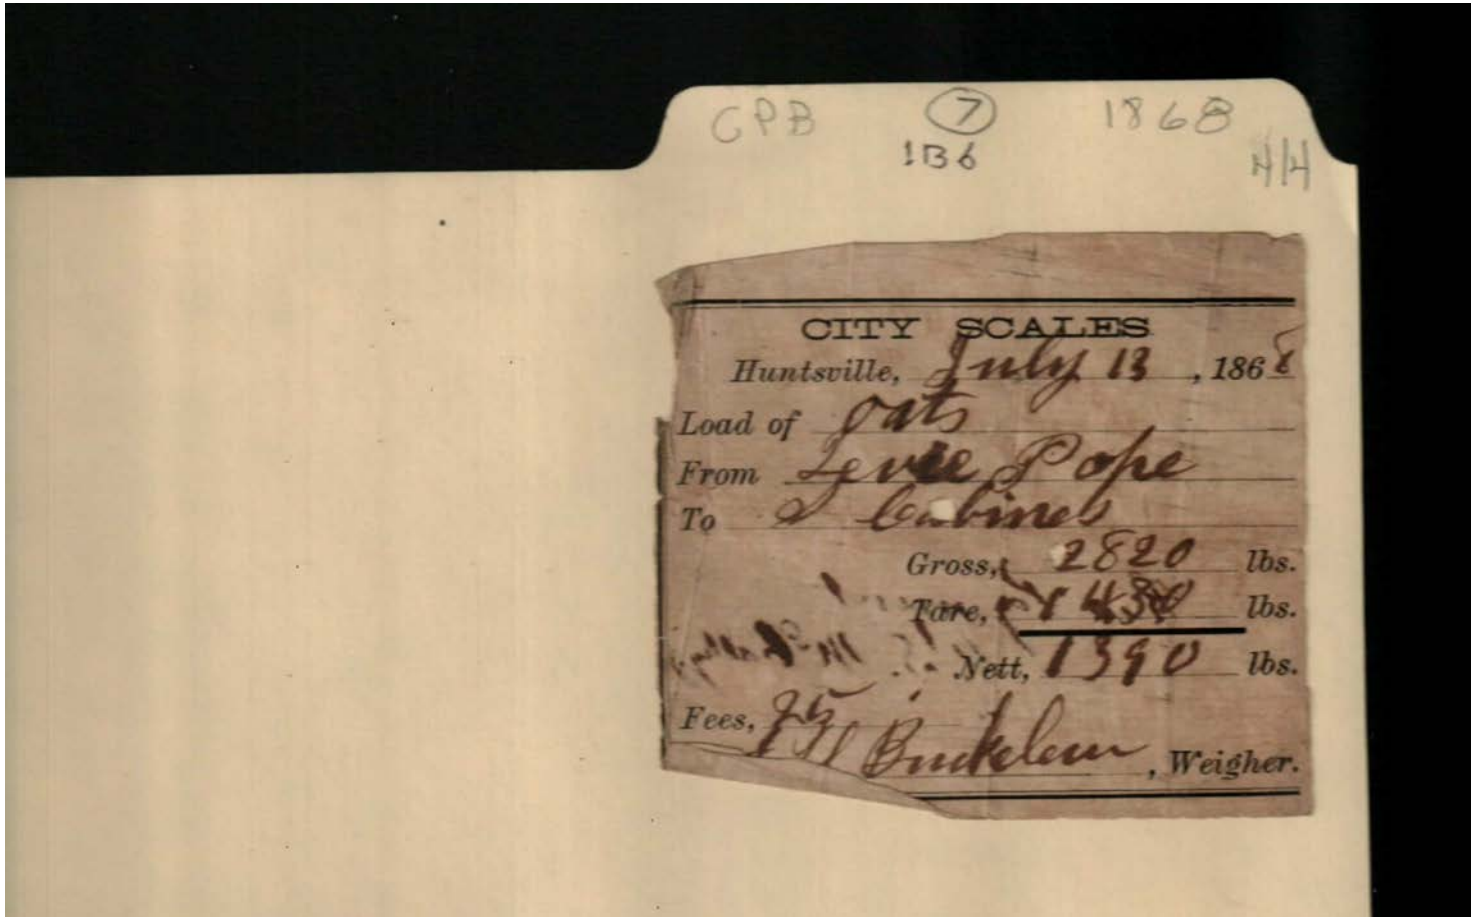 CPB 7 1868
1B6 4/4
CITY SCALES
Huntsville, July 13, 1868
Load of oats
From Levie Pope
To S Cabines
Gross, 2820 lbs.
Tare, 1430 lbs.
Nett, 1390 lbs.
Fees, 25
Buckelew, Weigher.